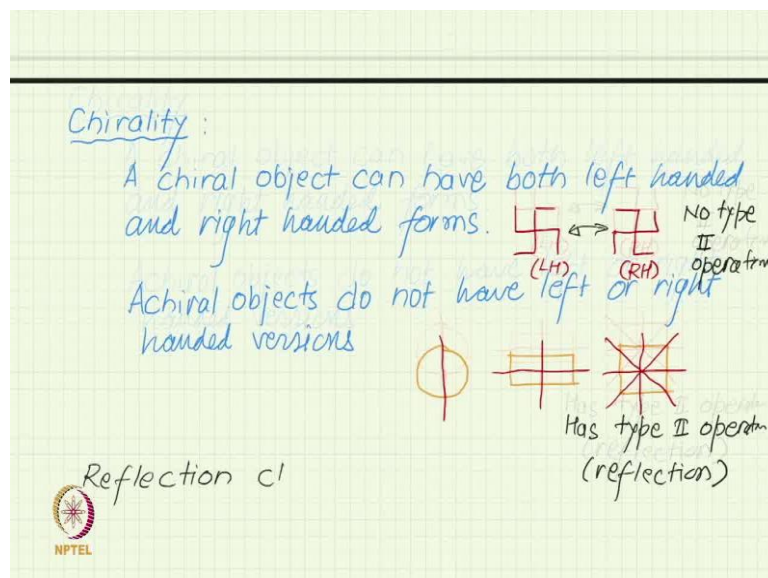 Chirality :
A chiral object can have both left handed
and right handed forms.
(LH)
(RH)
No type
II
operation
Achiral objects do not have left or right
handed versions
Has type II operatn
(reflection)
Reflection cl
NPTEL